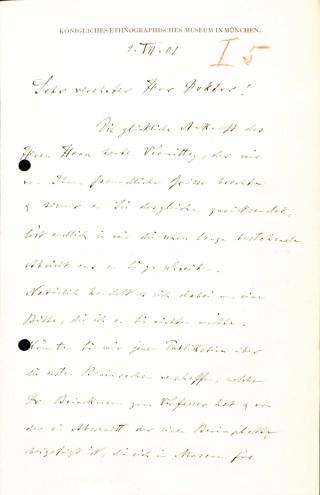 KÖNIGLICHES ETHNOGRAPHISCHES MUSEUM IN MÜNCHEN.
1. VII. 01
I 5
Sehr verehrter Herr Doktor!
Die glückliche Ankunft des
Herrn Haun heute Vormittag, der mir
von Ihnen freundliche Grüsse brachte
& sie an Sie desgleichen
löst endlich in mir die schon lange bestehende
Absicht aus an Sie zu schreiben.
Natürlich handelt es sich dabei um eine
Bitte, die ich an Sie richten möchte.
Könnten Sie mir jene Publikation über
die ersten Beninsachen verschaffen, welche
Dr. Brinckmann zum Verfasser hat & von
der ein Abschnitt der einen Beninplatte
beigefügt ist, die sich im Museum für